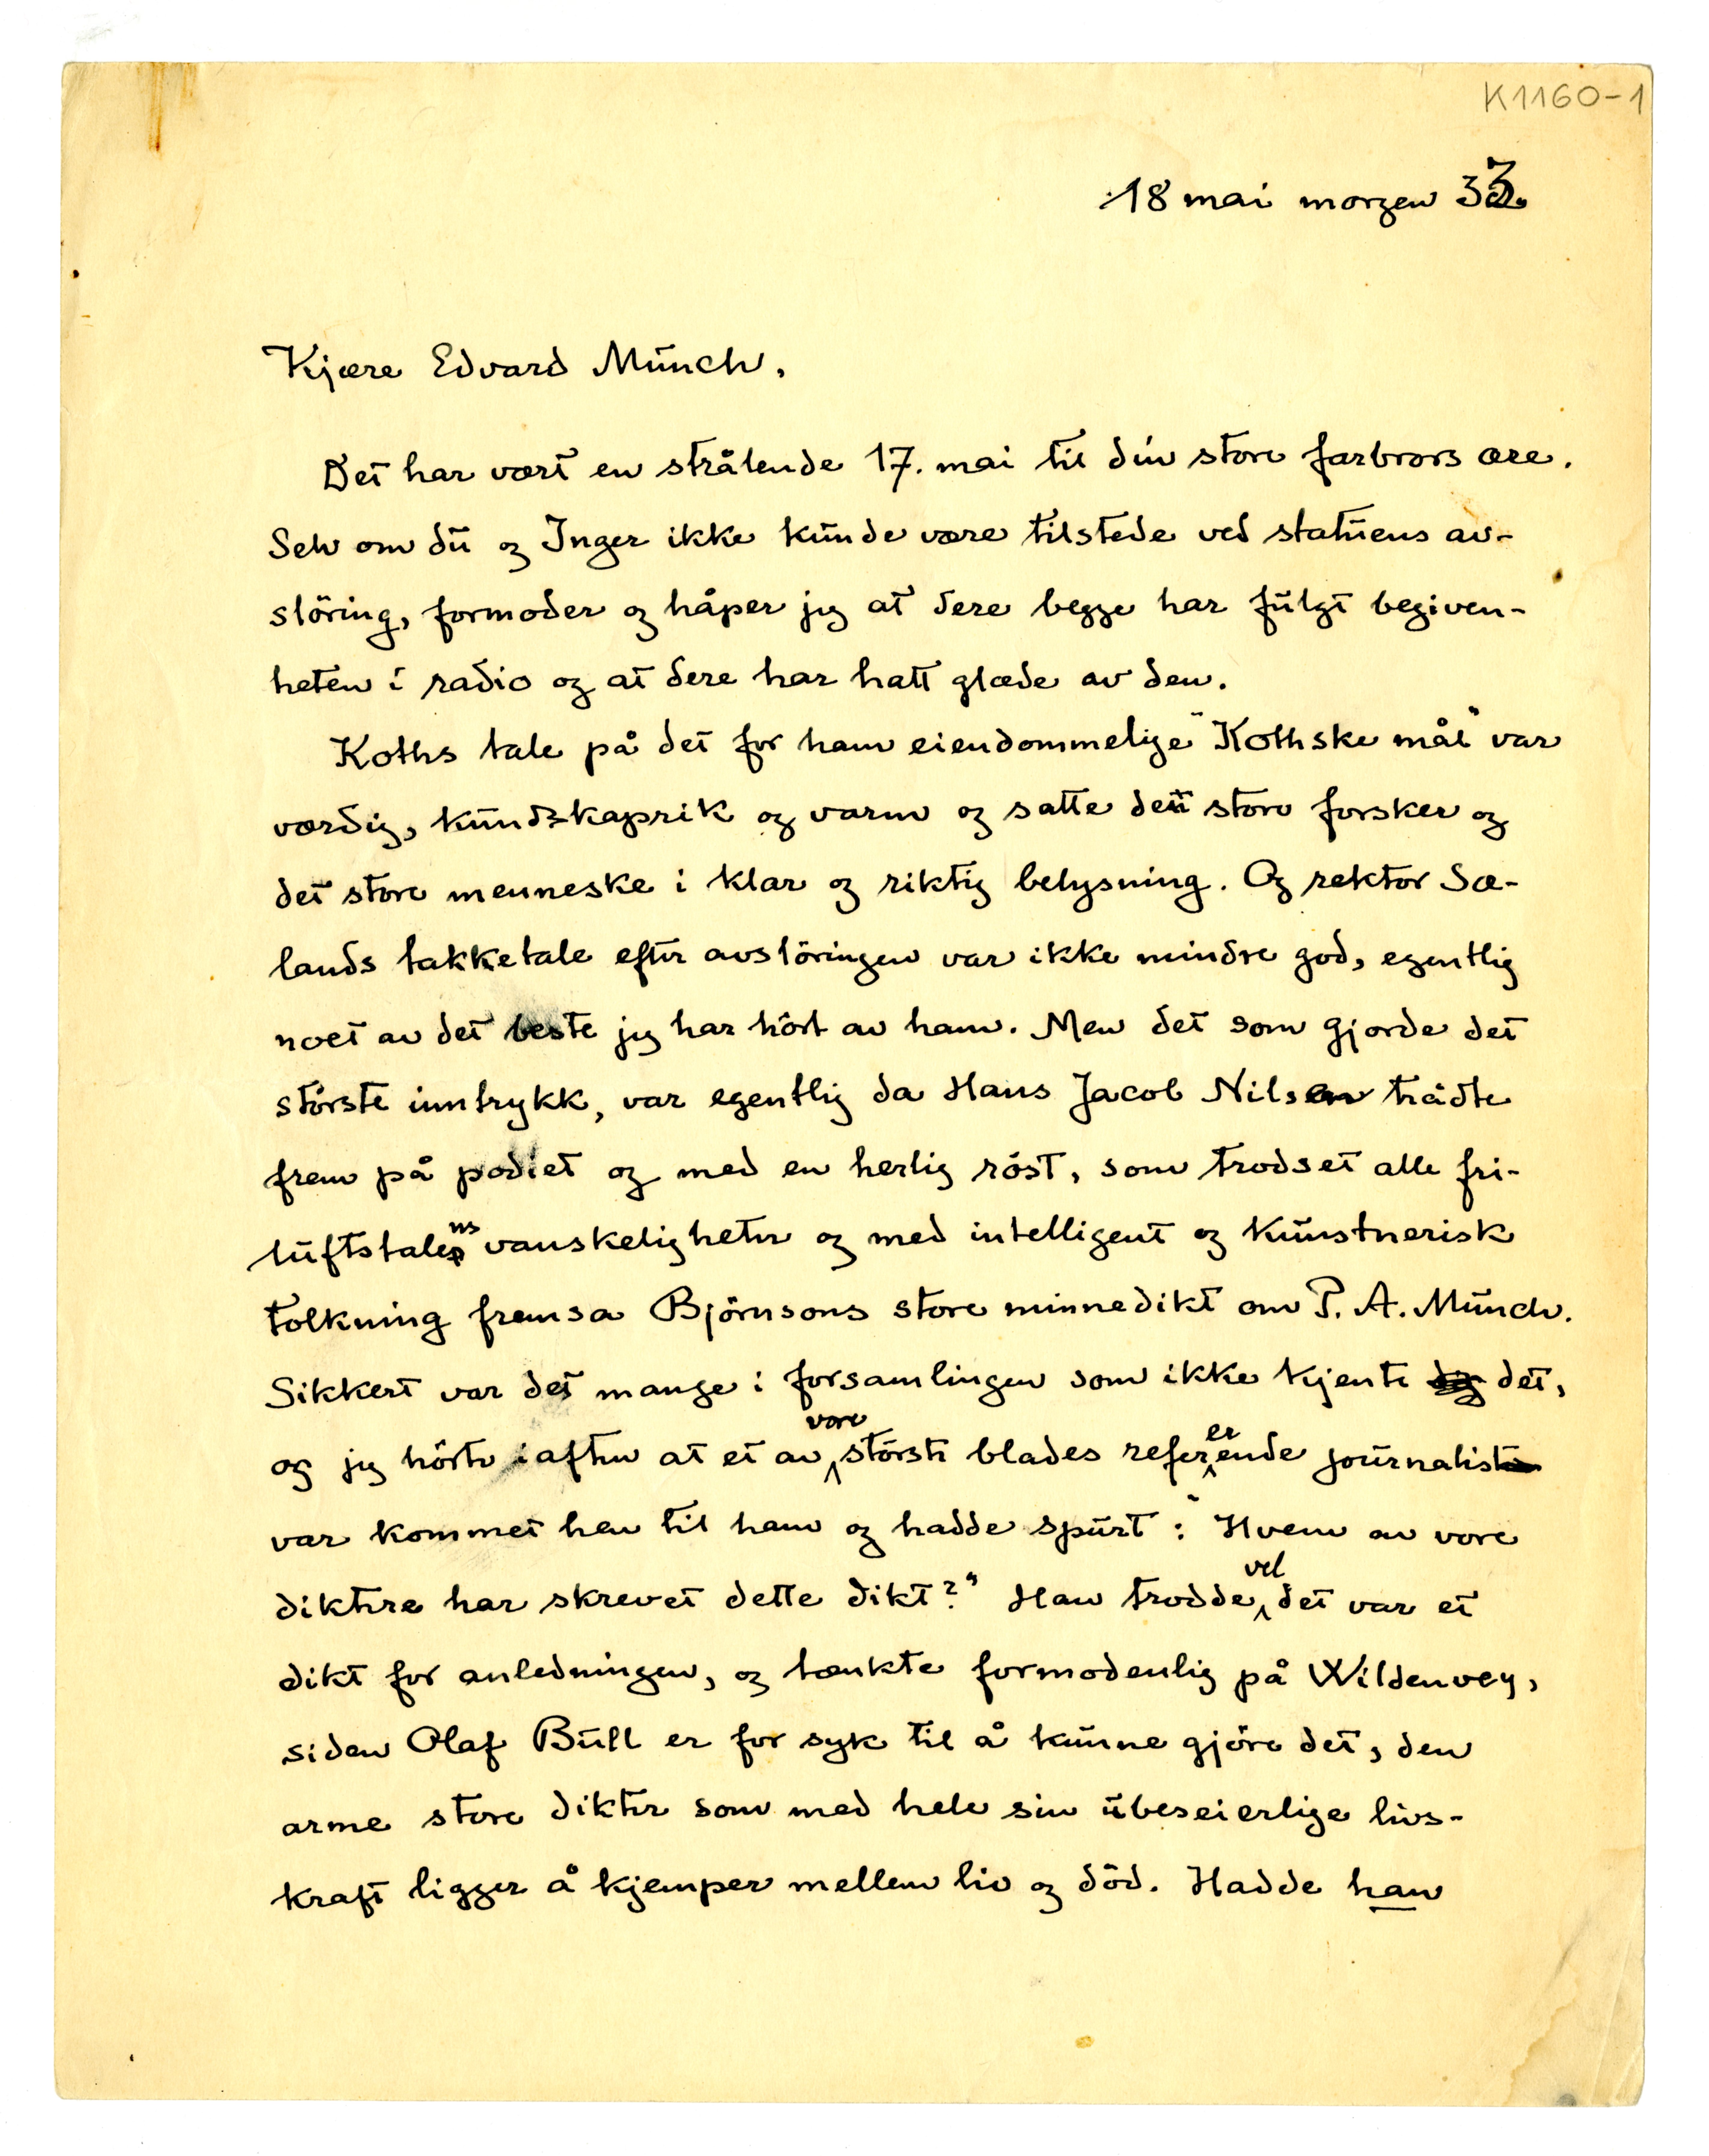 K1160-1
18 mai morgen 33.
Kjære Edvard Münch,
Det har vært en strålende 17. mai til din store farbrors ære.
Selv om dü og Inger ikke künde være tilstede ved statüens av-
slöring, formoder og håper jeg at dere begge har fülgt begiven-
heten i radio og at dere har hatt glæde av den.
Koths tale på det for ham eiendommelige "Kothske mål" var
værdig, kündskaprik og varm og satte den store forsker og
det store menneske i klar og riktig belysning. Og rektor Sæ-
lands takketale efter avslöringen var ikke mindre god, egentlig
noet av det beste jeg har hört av ham. Men det som gjorde det
störste inntrykk, var egentlig da Hans Jacob Nilsen trådte
frem på podiet og med en herlig röst, som trodset alle fri-
lüftstalens vanskeligheter og med intelligent og künstnerisk
tolkning fremsa Björnsons store minnedikt om P. A. Münch.
Sikkert var det mange i forsamlingen som ikke kjente det,
og jeg hörte iaften at et av vore störste blades refererende joürnalist
var kommet hen til ham og hadde spürt: "Hvem av vore
diktere har skrevet dette dikt?" Han trodde vel det var et
dikt for anledningen, og tænkte formodenlig på Wildenvey,
siden Olaf Büll er for syk til å künne gjöre det, den
arme store dikter som med hele sin übeseierlige livs-
kraft ligger å kjemper mellem liv og död. Hadde han